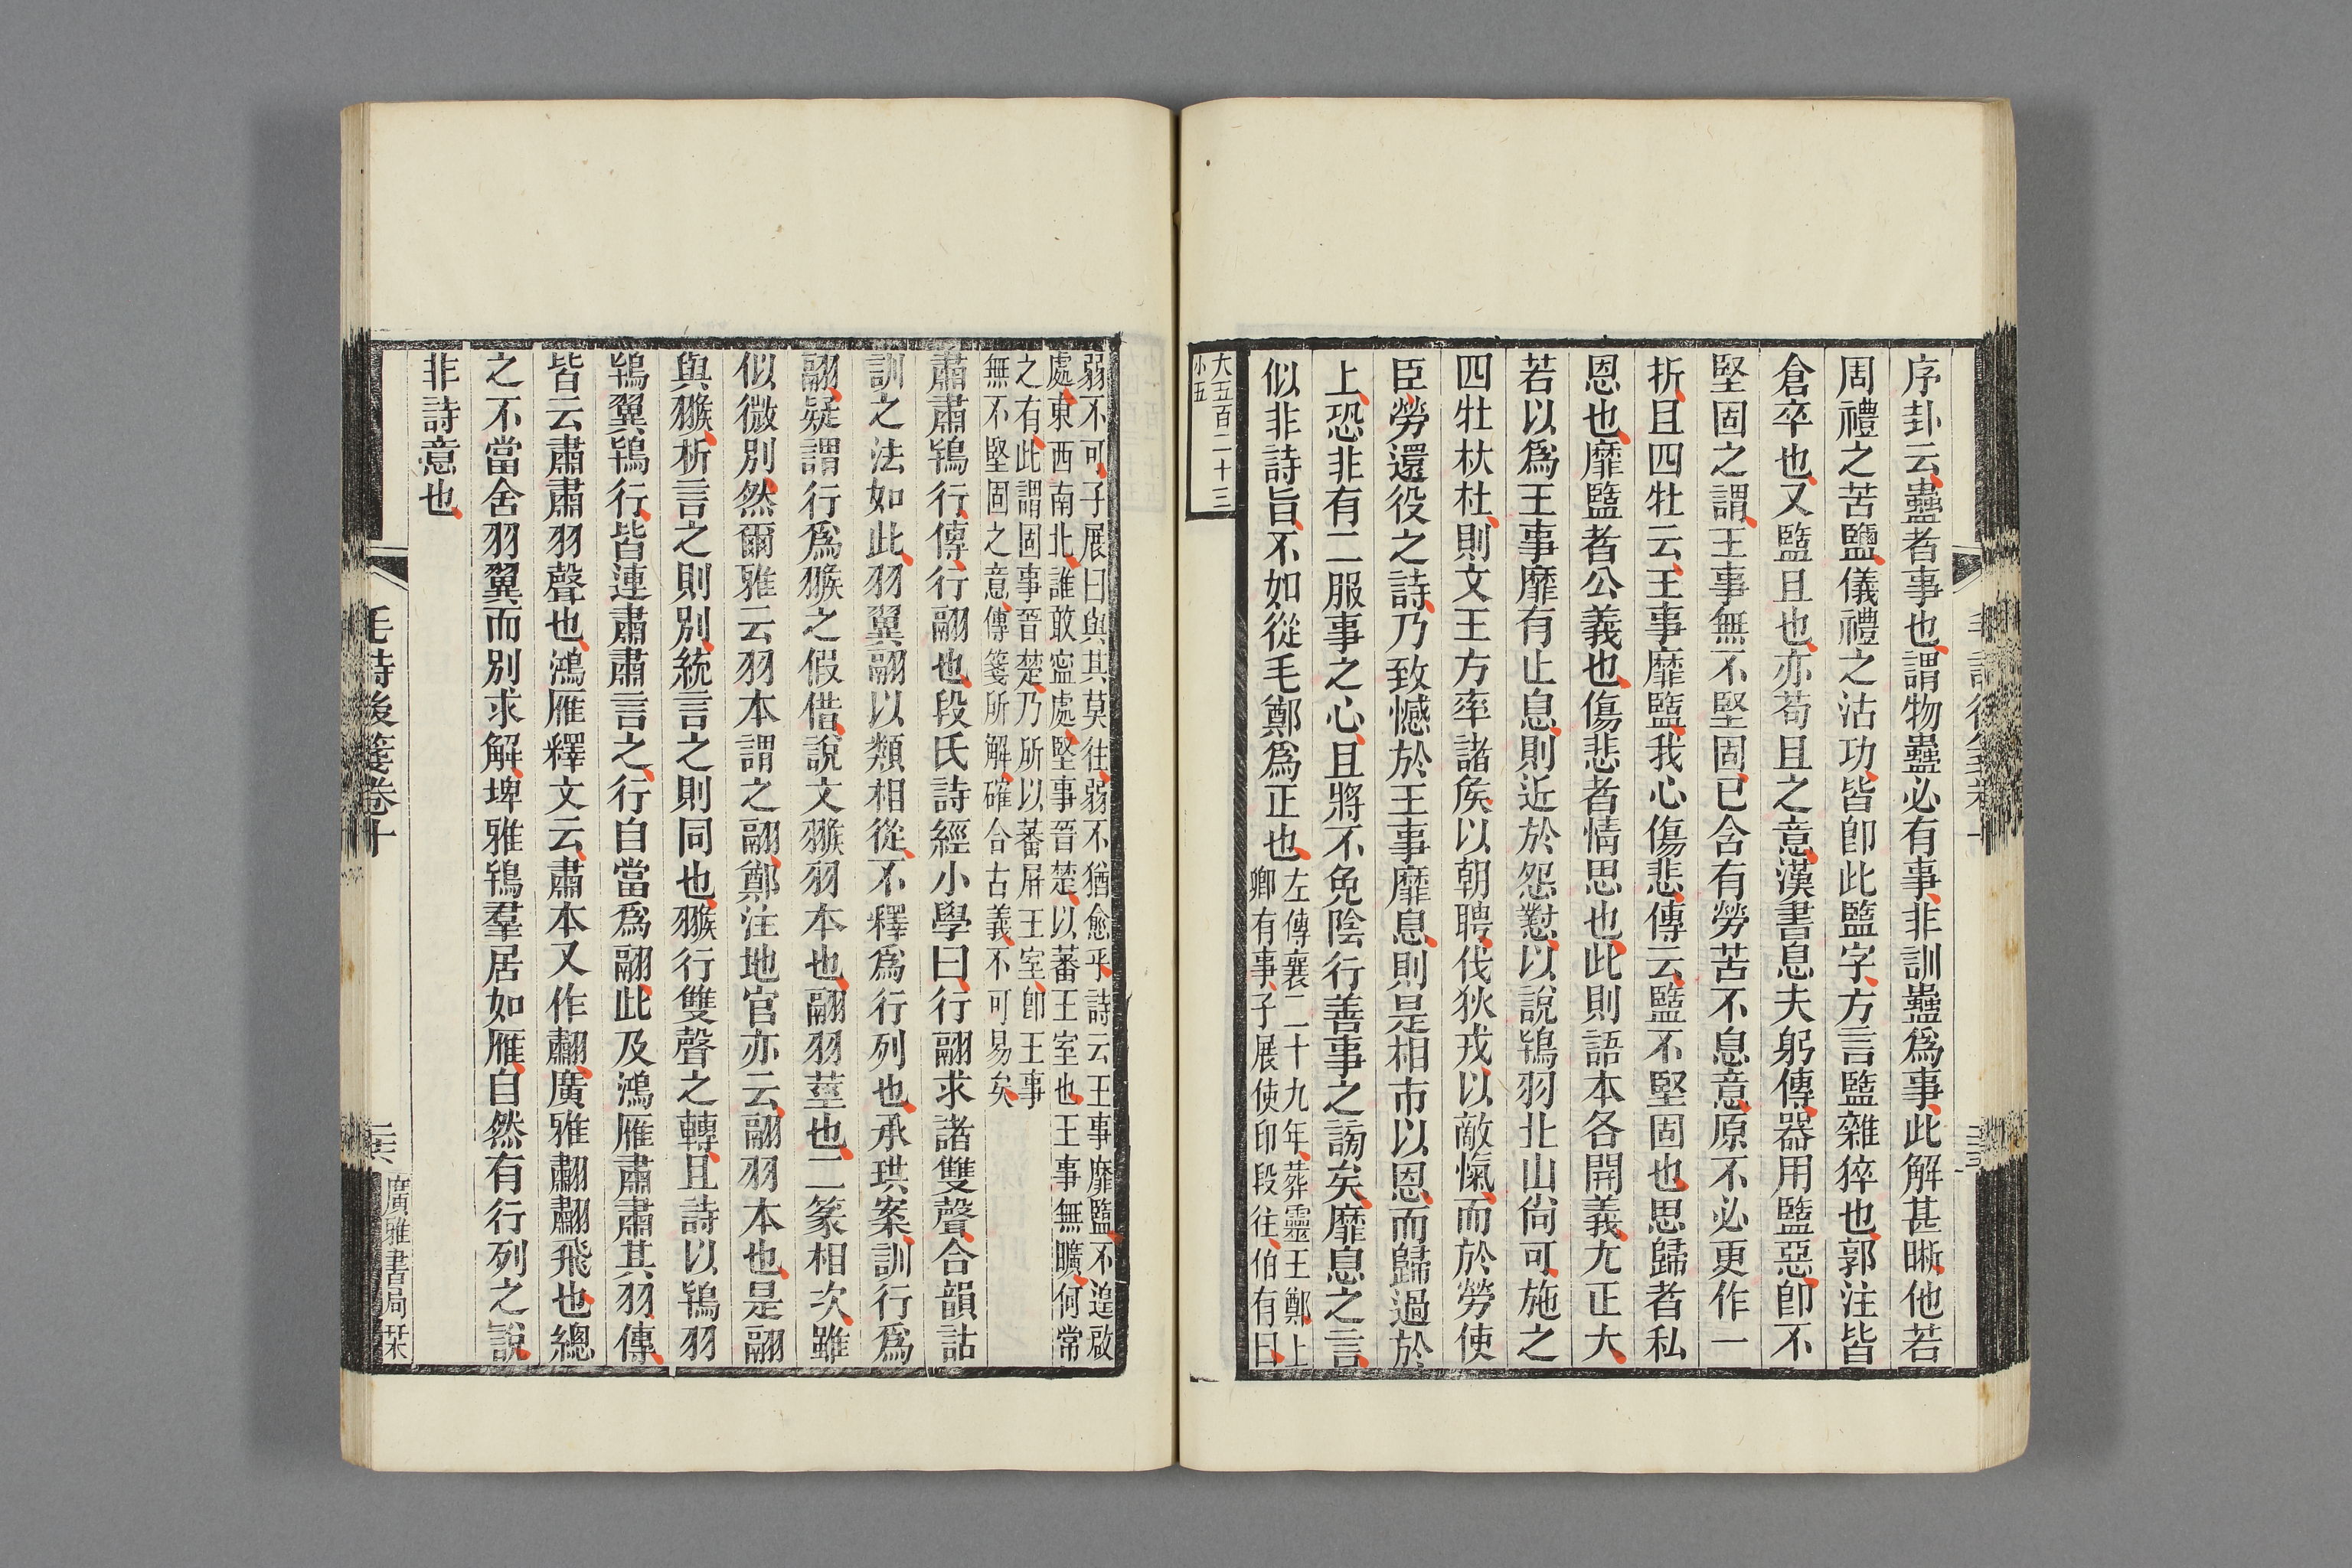 序卦云蠱者事也謂物蠱必有事非訓蠱爲事此解甚晰他若
周禮之苦鹽儀禮之沽功皆卽此盬字方言盬雜猝也郭注皆
倉卒也又盬且也亦苟且之意漢書息夫躬傳器用盬惡卽不
堅固之謂王事無不堅固已含有勞苦不息意原不必更作一
折且四牡云王事靡盬我心傷悲傳云盬不堅固也思歸者私
恩也靡盬者公義也傷悲者情思也此則語本各開義尤正大
若以爲王事靡有止息則近於怨懟以說鴇羽北山尙可施之
四牡杕杜則文王方率諸矦以朝聘伐狄戎以敵愾而於勞使
臣勞還役之詩乃致憾於王事靡息則是相市以恩而歸過於
上恐非有二服事之心且將不免陰行善事之謗矣靡息之言
似非詩旨不如從毛鄭爲正也左傳襄二十九年葬靈王鄭上
卿有事子展使印段往伯有曰
大五百二十三
小五
弱不可子展曰與其莫往弱不猶愈乎詩云王事靡盬不遑啟
處東西南北誰敢寍處堅事晉楚以蕃王室也王事無曠何常
之有此謂固事晉楚乃所以蕃屏王室卽王事
無不堅固之意傳箋所解確合古義不可易矣
肅肅鴇行傳行翮也段氏詩經小學曰行翮求諸雙聲合韻詁
訓之法如此羽翼翮以類相從不釋爲行列也承珙案訓行爲
翮疑謂行爲翭之假借說文翭羽本也翮羽莖也二篆相次雖
似微別然爾雅云羽本謂之翮鄭注地官亦云翮羽本也是翮
與翭析言之則別統言之則同也翭行雙聲之轉且詩以鴇羽
鴇翼鴇行皆連肅肅言之行自當爲翮此及鴻雁肅肅其羽傳
皆云肅肅羽聲也鴻雁釋文云肅本又作翿廣雅翿翿飛也總
之不當舍羽翼而別求解埤雅鴇羣居如雁自然有行列之說
非詩意也
毛詩後箋卷十
廣雅書局栞